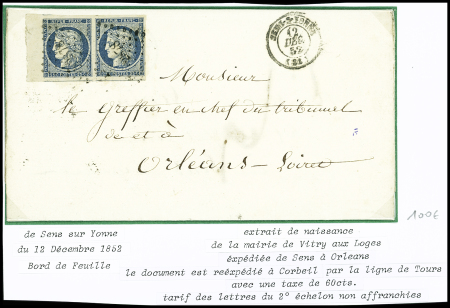 REPUB. FRANC. REPUB. FRANC.
SENS-S-YONNE
12
DEC.
52
Monsieur
le greffier en chef du tribunal
de et à
Orléans - Loiret
100€
de Sens sur Yonne
du 12 Décembre 1852
Bord de Feuille
extrait de naissance
de la mairie de Vitry aux Loges
éxpédiée de Sens à Orleans
le document est reéxpédié à Corbeil par la ligne de Tours
avec une taxe de 60cts.
tarif des lettres du 2° échelon non affranchies